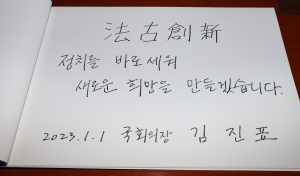 法古創新
정치를 바로세워
새로운 희망을 만들겠습니다.
2023.1.1 국회의장 김진표